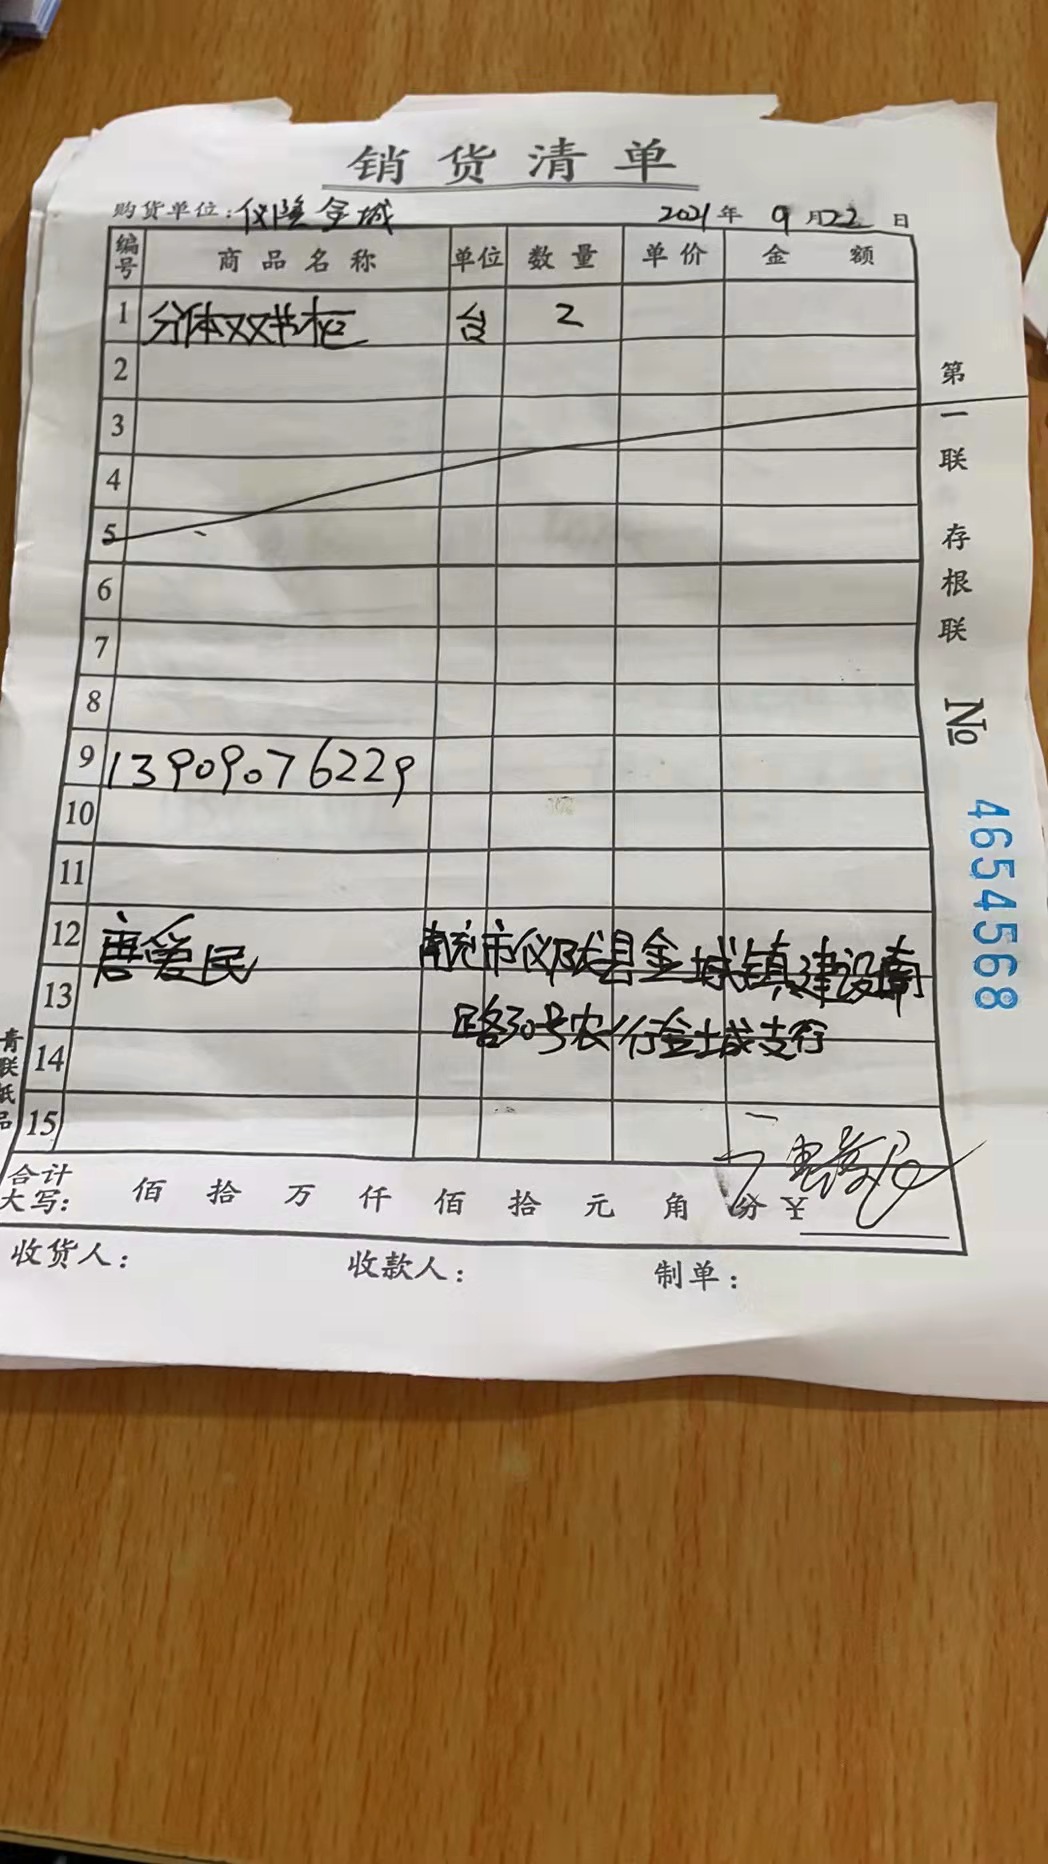 销货清单
购货单位：仪陇金城 2021年 9月22日
编号 商品名称 单位 数量 单价 金额
1 分体双节柜 台 2
2
3
4
5
6
7
8
9 13909076229
10
11
12 唐爱民 南充市仪陇县金城镇建设南
13 路30号农行金城支行
14
15
合计大写： 佰 拾 万 仟 佰 拾 元 角 分 ¥
收货人： 收款人： 制单：
第一联 存根联 № 4654568
青联纸品